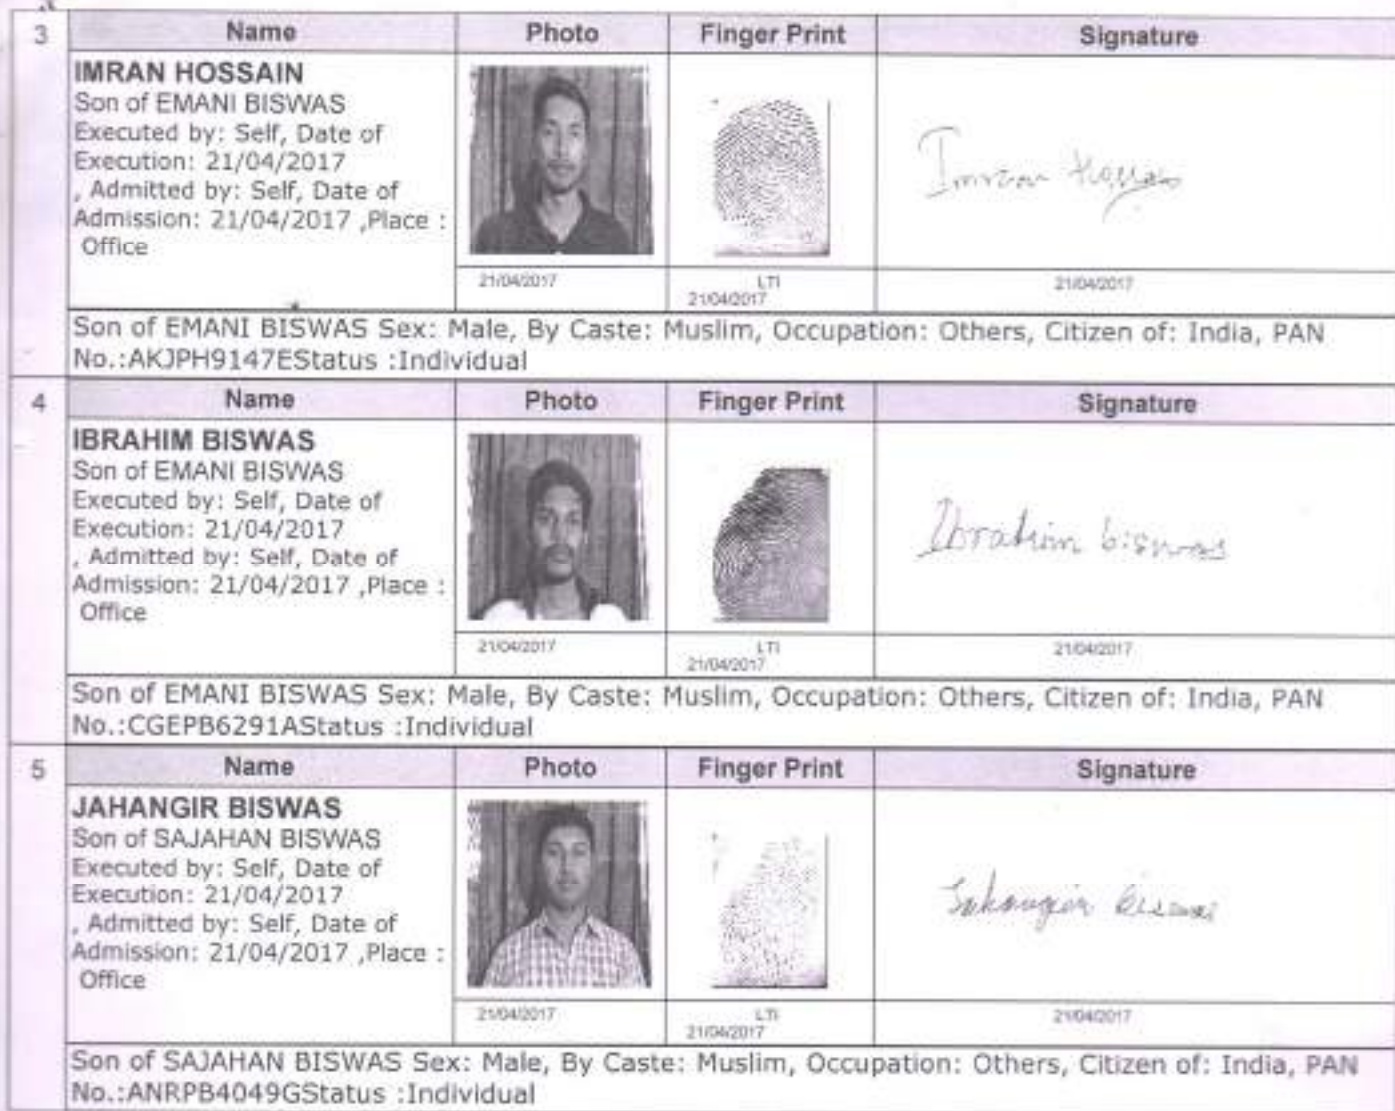 3 Name Photo Finger Print Signature
IMRAN HOSSAIN
Son of EMANI BISWAS
Executed by: Self, Date of
Execution: 21/04/2017
, Admitted by: Self, Date of
Admission: 21/04/2017 ,Place :
Office
Imran Hossain
21/04/2017 LTI 21/04/2017
21/04/2017
Son of EMANI BISWAS Sex: Male, By Caste: Muslim, Occupation: Others, Citizen of: India, PAN
No.:AKJPH9147EStatus :Individual
4 Name Photo Finger Print Signature
IBRAHIM BISWAS
Son of EMANI BISWAS
Executed by: Self, Date of
Execution: 21/04/2017
, Admitted by: Self, Date of
Admission: 21/04/2017 ,Place :
Office
Ibrahim biswas
21/04/2017 LTI 21/04/2017
21/04/2017
Son of EMANI BISWAS Sex: Male, By Caste: Muslim, Occupation: Others, Citizen of: India, PAN
No.:CGEPB6291AStatus :Individual
5 Name Photo Finger Print Signature
JAHANGIR BISWAS
Son of SAJAHAN BISWAS
Executed by: Self, Date of
Execution: 21/04/2017
, Admitted by: Self, Date of
Admission: 21/04/2017 ,Place :
Office
Jahangir Biswas
21/04/2017 LTI 21/04/2017
21/04/2017
Son of SAJAHAN BISWAS Sex: Male, By Caste: Muslim, Occupation: Others, Citizen of: India, PAN
No.:ANRPB4049GStatus :Individual